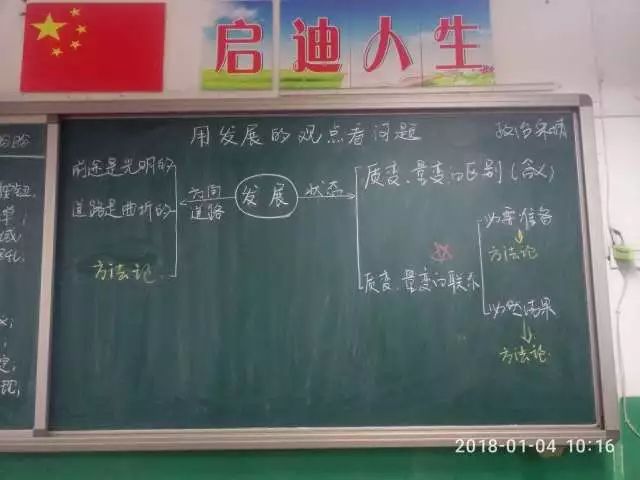 启迪人生
用发展的观点看问题
前途是光明的
道路是曲折的
方法论
方向
道路
发展
状态
质变、量变的区别(含义)
质变、量变的联系
必要准备
方法论
必然结果
方法论
2018-01-04 10:16